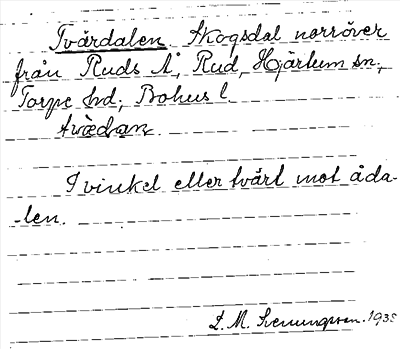 Tvärdalen Skogsdal norröver
från Ruds Å, Rud, Hjärtum sn,
Torpe hd, Bohus l.
tvædan.
I vinkel eller tvärt mot åda-
-len.
L. M. Svenungsson. 1935